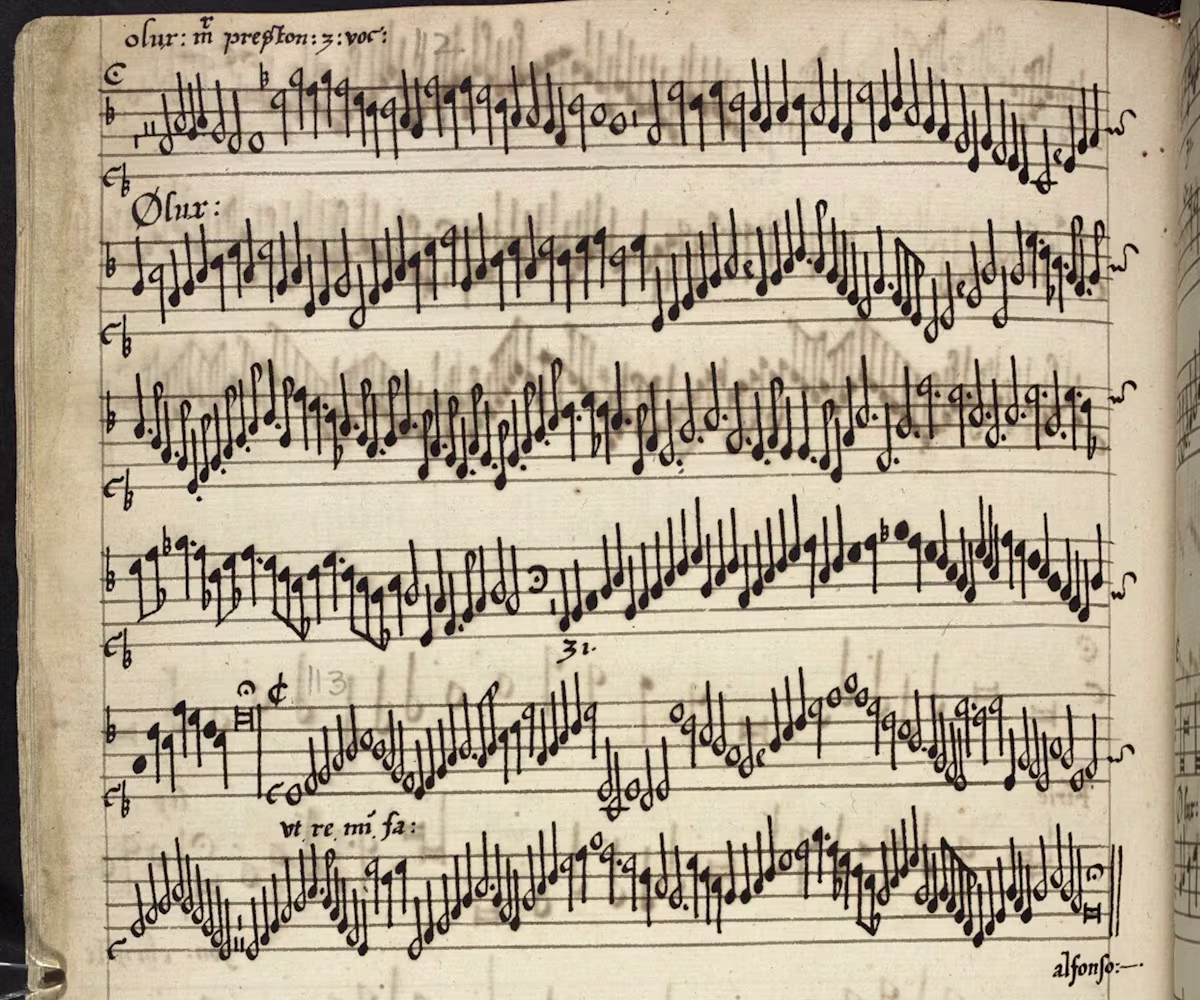 olux: mr preston: 3: voc:
112
Ølux:
31.
113
vt re mi fa:
alfonso:—.